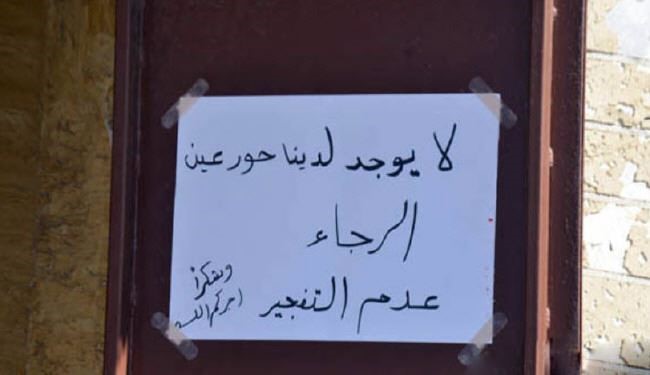 لا يوجد لدينا حور عين
الرجاء
عدم التفجير
وشكراً
اجركم الله